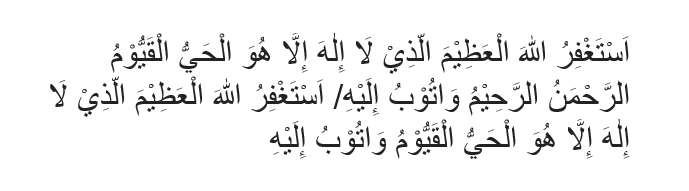 اَسْتَغْفِرُ اللهَ الْعَظِيْمَ الَّذِيْ لَا إِلٰهَ إِلَّا هُوَ الْحَيُّ الْقَيُّوْمُ
الرَّحْمَنُ الرَّحِيْمُ وَاتُوْبُ إِلَيْهِ/ اَسْتَغْفِرُ اللهَ الْعَظِيْمَ الَّذِيْ لَا
إِلٰهَ إِلَّا هُوَ الْحَيُّ الْقَيُّوْمُ وَاتُوْبُ إِلَيْهِ